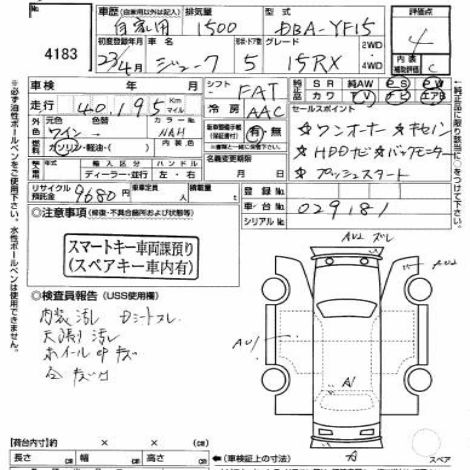 4183
車歴 (自家用以外は記入) 排気量 型式 評価点
自家用 1500 DBA-YF15 4
初度登録年月 車名 形状・ドア数 グレード 2WD 4WD 内装補助評価 C
23/4月 ジューク 5 15RX
車検 年 月 シフト FAT
走行 40,195 Km マイル 冷房 AAC
純正 SR AW 純AW PS PW
カワ TV エアB
元色 色替 カラーNo.
ワイン NAH
燃料 ガソリン・軽油・( ) 有・無
(保証書付) ※書類と一緒に保管
セールスポイント
☆ワンオーナー ☆キセノン
☆HDDナビ ☆バックモニター
☆プッシュスタート
輸入区分 ハンドル
ディーラー・並行 左・右
名義変更期限 年 月 日
リサイクル預託金 9680円 車車定員 人 積載量 t
登録No.
車台No. 029181
シリアルNo.
○注意事項 (修復・不具合箇所および状態等)
スマートキー車両課預り
(スペアキー車内有)
○検査員報告 (USS使用欄)
内装汚れ
天張り汚れ
ホイールキズ
A
※必ず油性ボールペンをご使用下さい。水性ボールペンは使用できません。
荷台内寸(約 × × )
長さ 幅 高さ ←(車検証上の寸法) スペア